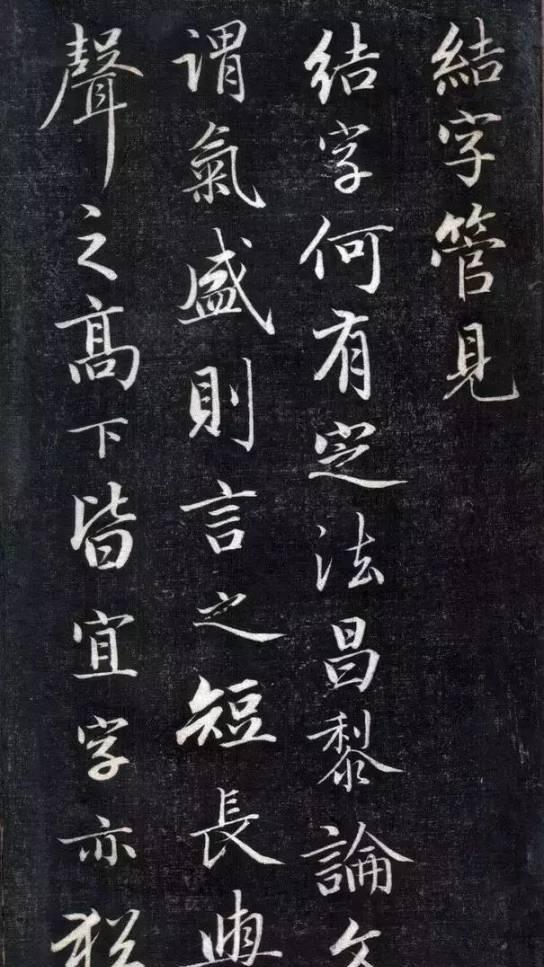 結字管見
结字何有定法昌黎論文
謂氣盛則言之短長與
聲之高下皆宜字亦猶